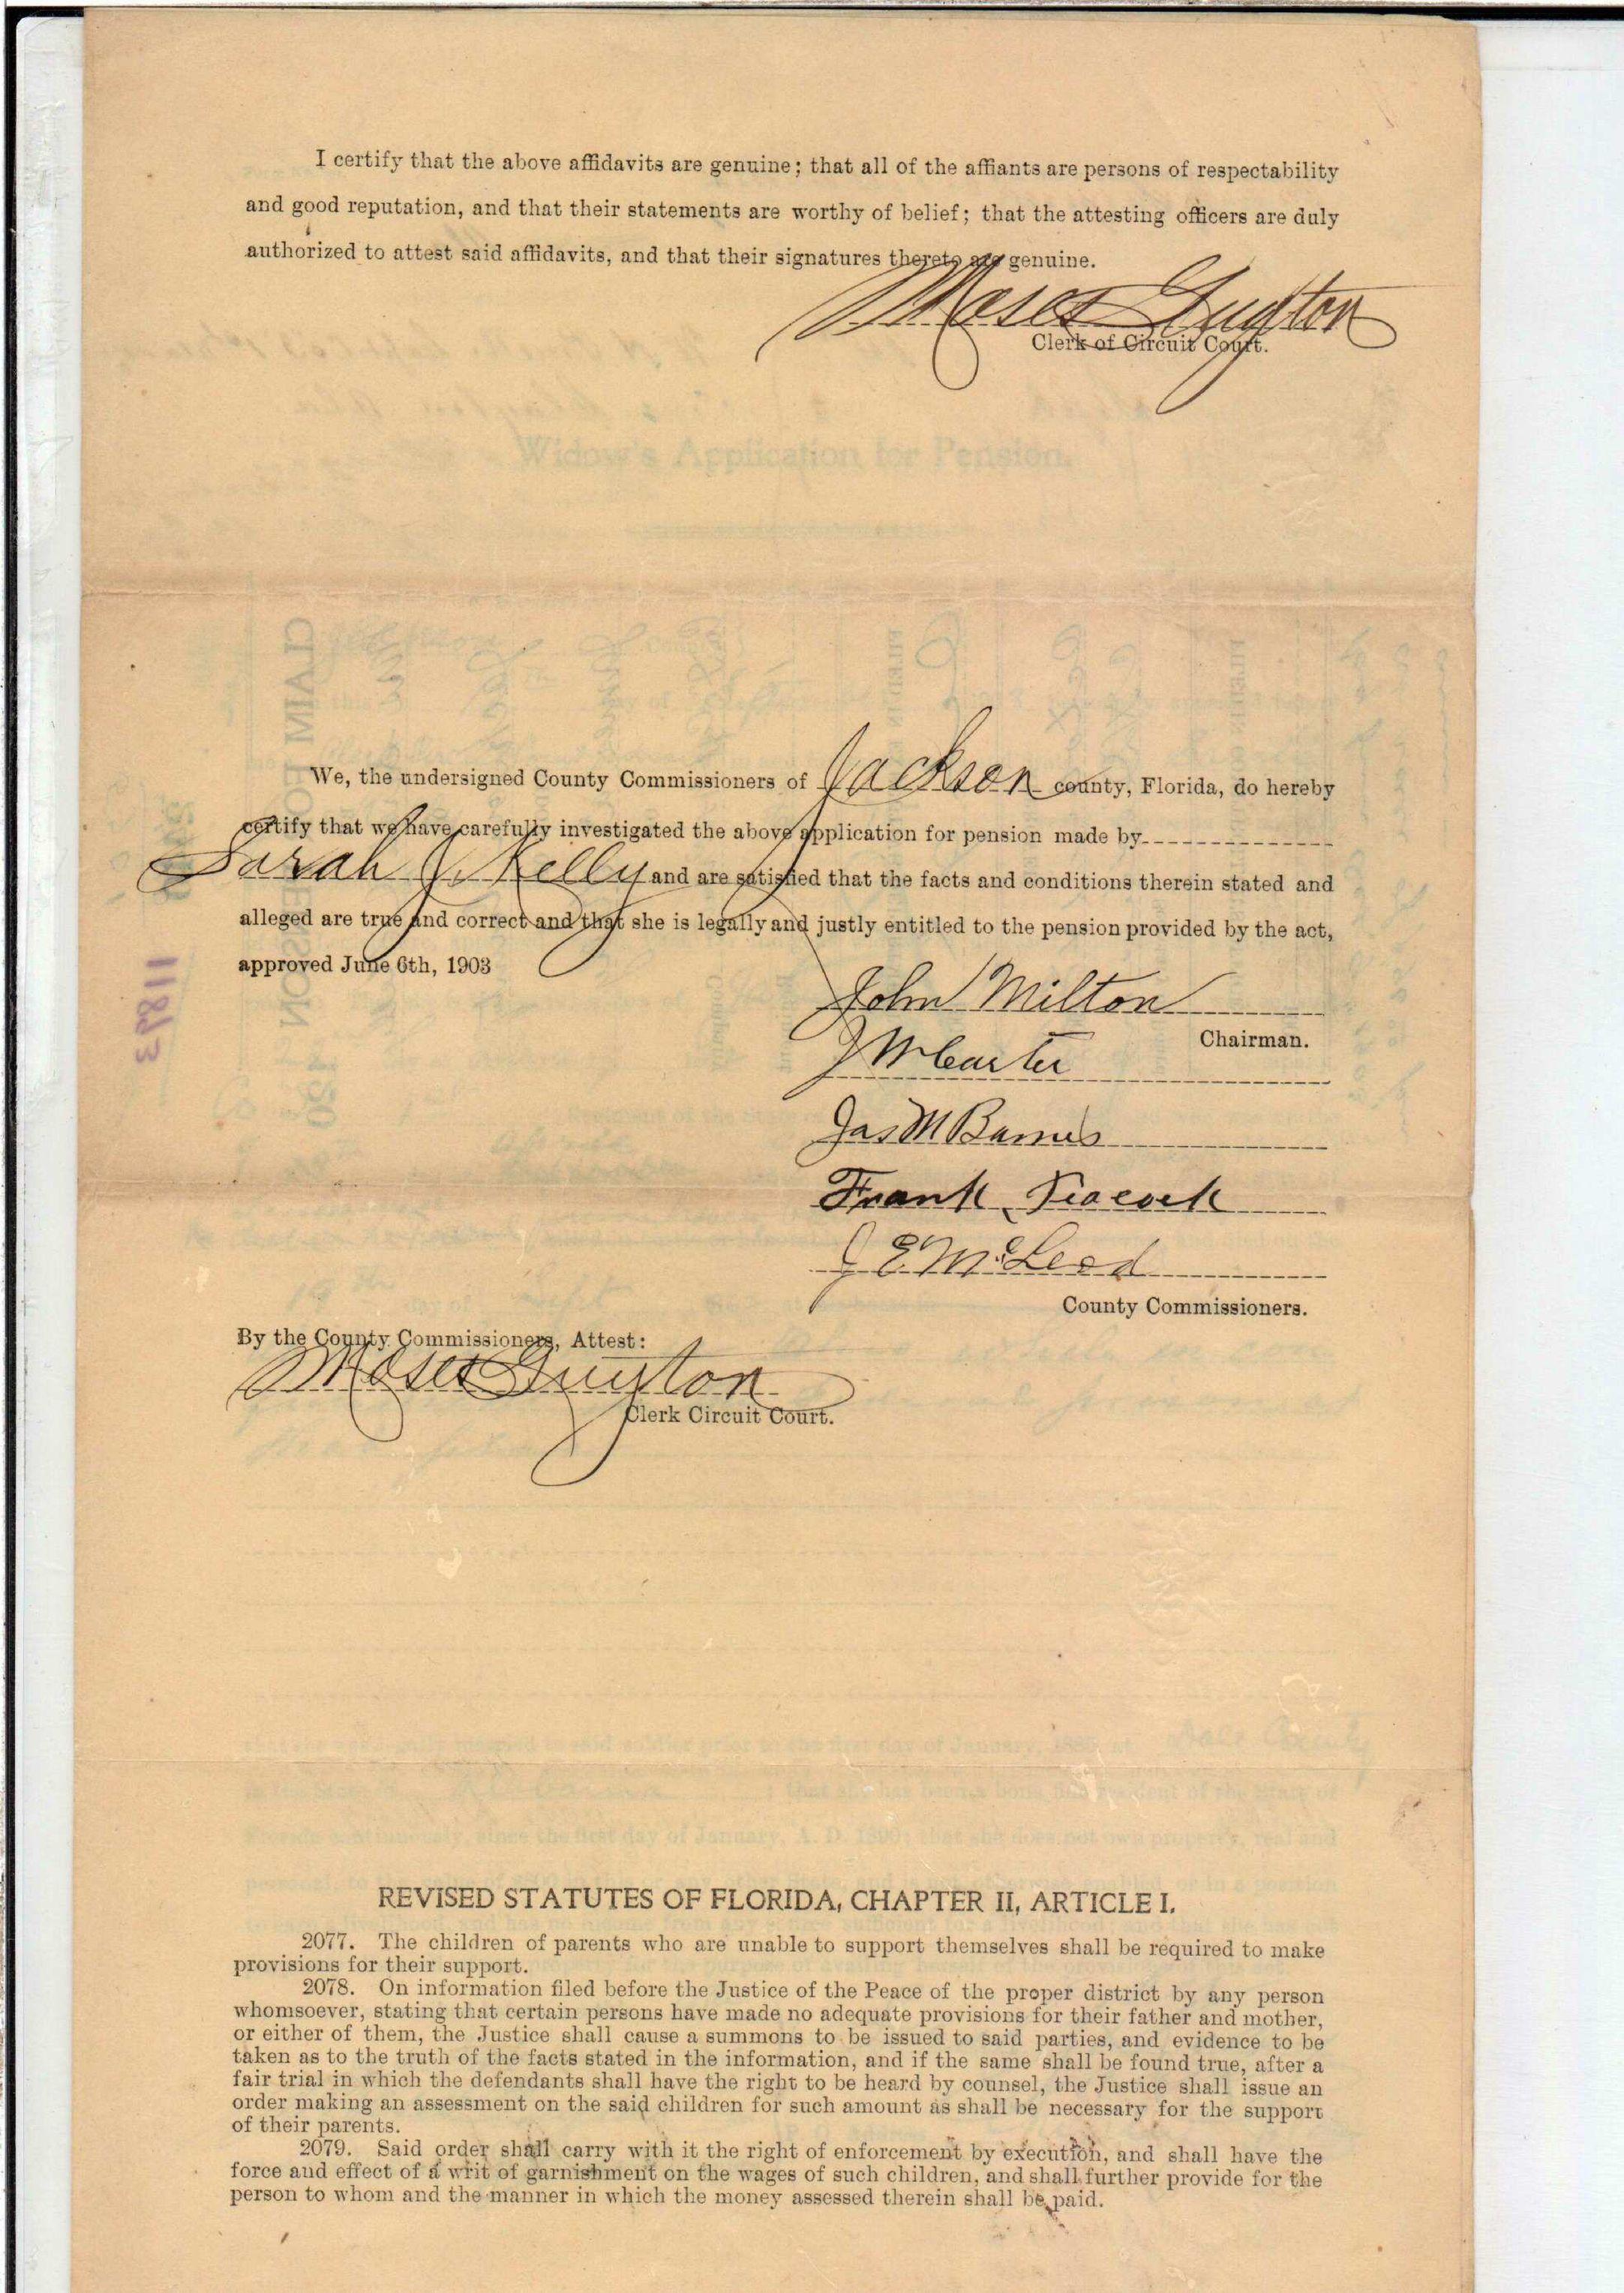 I certify that the above affidavits are genuine; that all of the affiants are persons of respectability
and good reputation, and that their statements are worthy of belief; that the attesting officers are duly
authorized to attest said affidavits, and that their signatures thereto are genuine.
Moses Guyton
Clerk of Circuit Court.
Widow's Application for Pension.
We, the undersigned County Commissioners of Jackson county, Florida, do hereby
certify that we have carefully investigated the above application for pension made by
Sarah J. Kelly and are satisfied that the facts and conditions therein stated and
alleged are true and correct and that she is legally and justly entitled to the pension provided by the act,
approved June 6th, 1903
John Milton
Chairman.
J W Carter
Jas M Barnes
Frank Peacock
J E McLeod
County Commissioners.
By the County Commissioners, Attest:
Moses Guyton
Clerk Circuit Court.
11893
REVISED STATUTES OF FLORIDA, CHAPTER II, ARTICLE I.
2077. The children of parents who are unable to support themselves shall be required to make
provisions for their support.
2078. On information filed before the Justice of the Peace of the proper district by any person
whomsoever, stating that certain persons have made no adequate provisions for their father and mother,
or either of them, the Justice shall cause a summons to be issued to said parties, and evidence to be
taken as to the truth of the facts stated in the information, and if the same shall be found true, after a
fair trial in which the defendants shall have the right to be heard by counsel, the Justice shall issue an
order making an assessment on the said children for such amount as shall be necessary for the support
of their parents.
2079. Said order shall carry with it the right of enforcement by execution, and shall have the
force and effect of a writ of garnishment on the wages of such children, and shall further provide for the
person to whom and the manner in which the money assessed therein shall be paid.